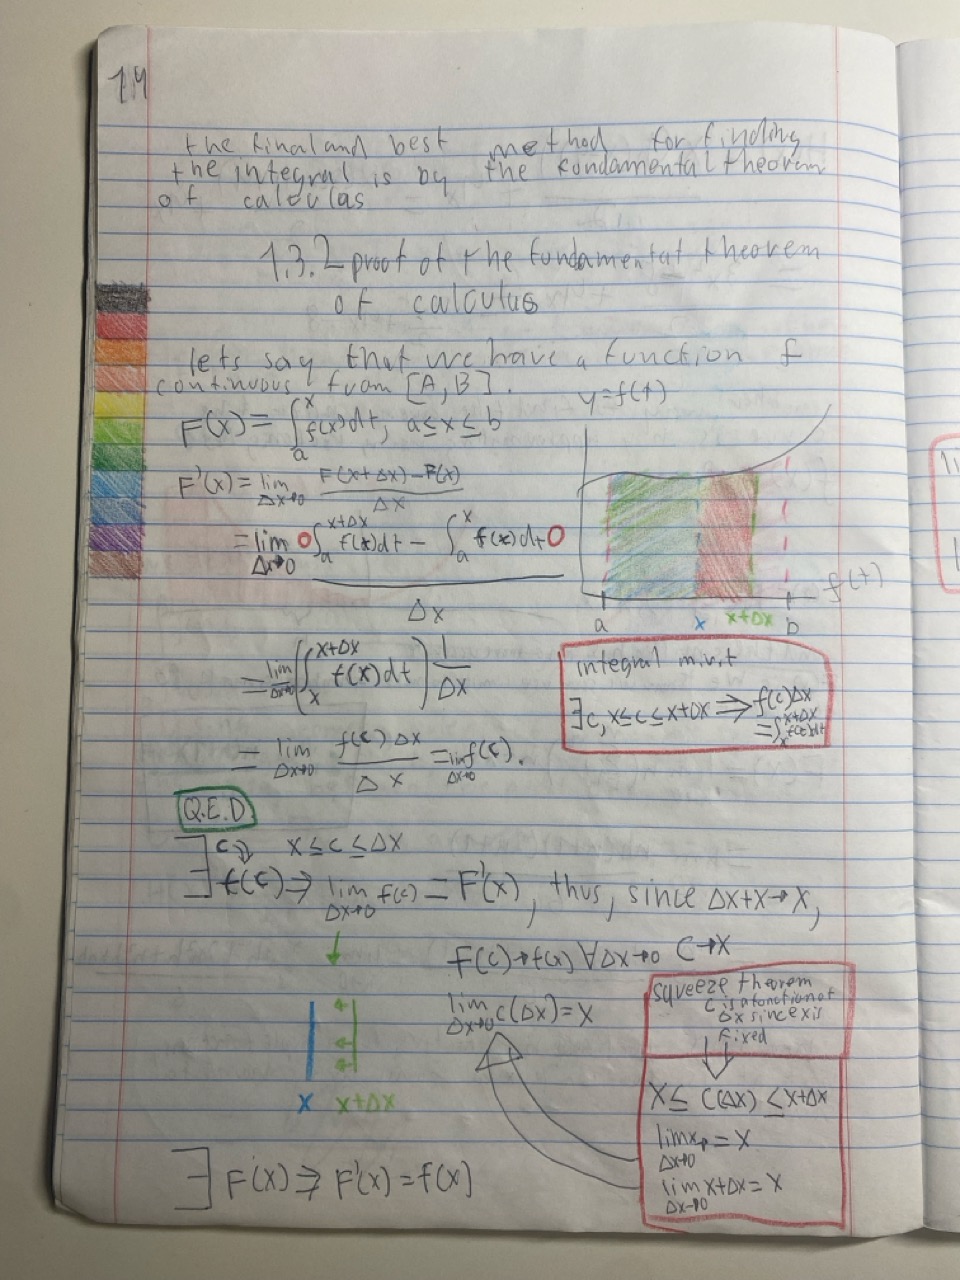 14
the final and best method for finding
the integral is by the fundamental theorem
of calculas
1.3.2 proof of the fundamental theorem
of calculus
lets say that we have a function f
continuous from [A, B].
y=f(t)
F(x) = ∫_a^x f(x)dt, a≤x≤b
F'(x) = lim_{Δx→0} (F(x+Δx)-F(x))/Δx
= lim_{Δx→0} (∫_a^{x+Δx} f(x)dt - ∫_a^x f(x)dt)/Δx
f(t)
a x x+Δx b
= lim_{Δx→0} (∫_x^{x+Δx} f(x)dt) 1/Δx
integral m.v.t
∃c, x≤c≤x+Δx ⇒ f(c)Δx
= ∫_x^{x+Δx} f(x)dt
= lim_{Δx→0} f(c)Δx/Δx = lim_{Δx→0} f(c).
Q.E.D
∃ c x≤c≤Δx
∃ f(c) ⇒ lim_{Δx→0} f(c) = F'(x), thus, since Δx+x→x,
F(c)→f(x) ∀Δx→0 C→x
lim_{Δx→0} c(Δx) = x
squeeze theorem
c is a function of
Δx since x is
fixed
x ≤ c(Δx) ≤ x+Δx
lim_{Δx→0} x = x
lim_{Δx→0} x+Δx = x
x x+Δx
∃ F(x) ⇒ F'(x) = f(x)